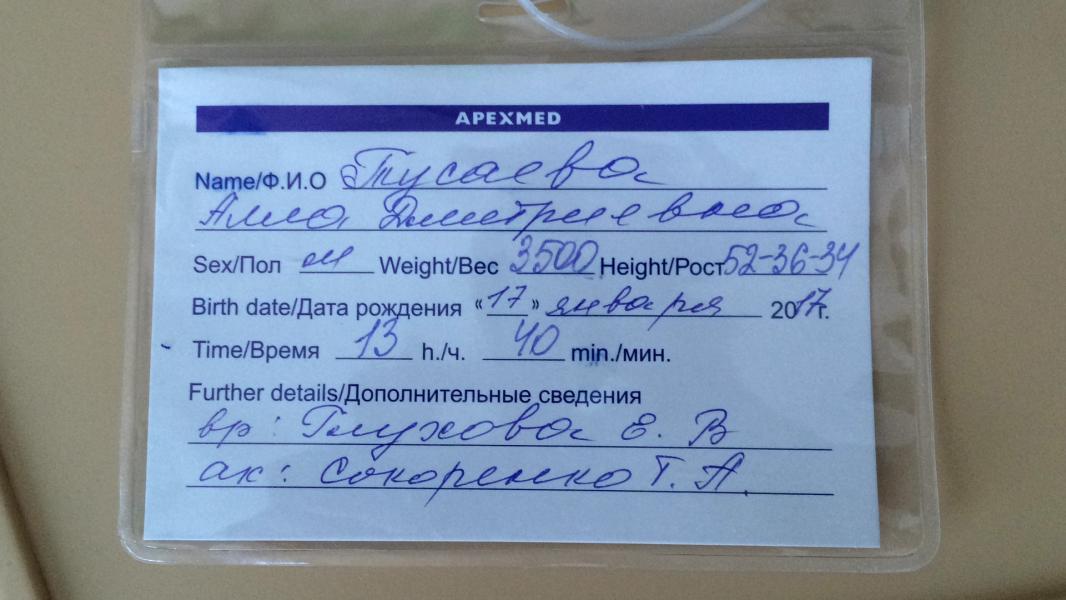 APEXMED
Name/Ф.И.О Тусаева
Алла Дмитриевна
Sex/Пол м Weight/Вес 3500 Height/Рост 52-36-34
Birth date/Дата рождения «17» января 2017г.
Time/Время 13 h./ч. 40 min./мин.
Further details/Дополнительные сведения
вр: Глухова Е. В
ак: Сокоренко Т. А.